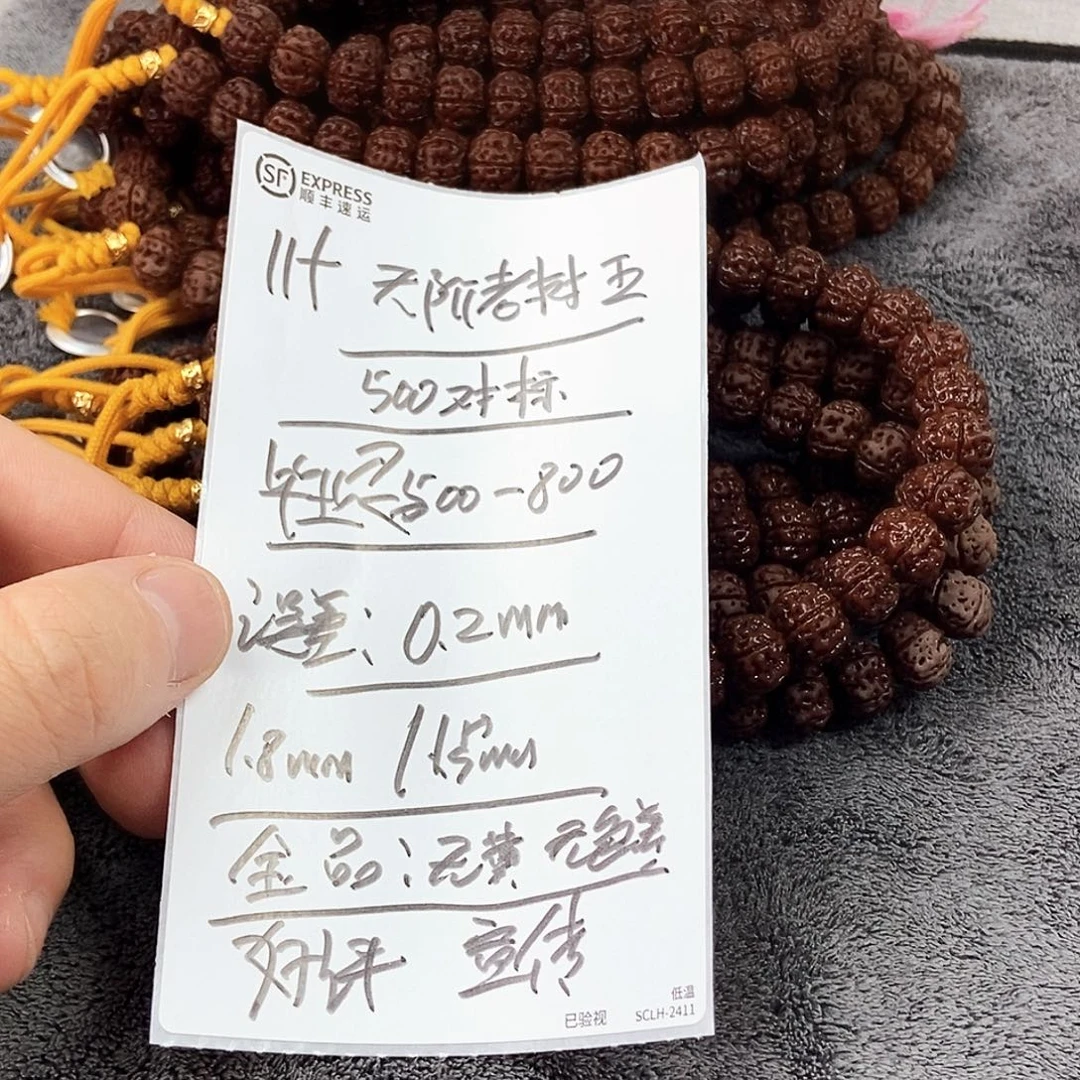 SF EXPRESS
顺丰速运
天阶老树玉
500对标
毕业尽500-800
误差:0.2mm
1.8mm
全品:无黄 无色差
好评 宣传
低温
已验视 SCLH-2411